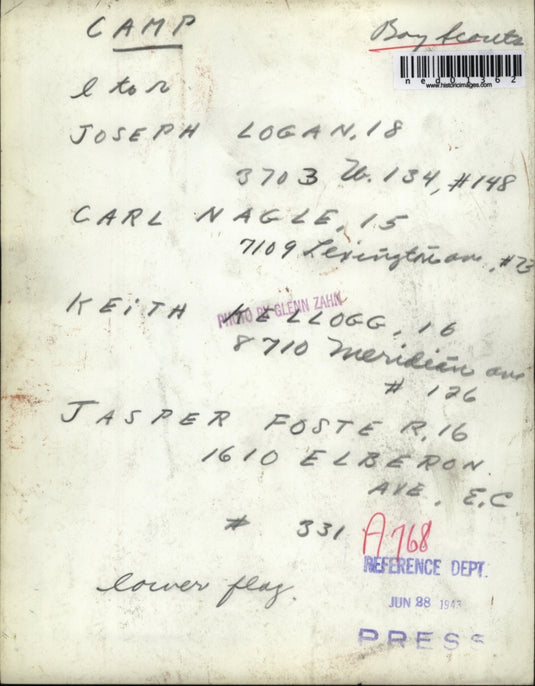 CAMP
Boy Scouts
ned01362
www.historicimages.com
l to r
JOSEPH LOGAN, 18
3703 W. 134, #148
CARL NAGLE, 15
7109 Lexington ave, #73
KEITH KELLOGG, 16
PHOTO BY GLENN ZAHN
8710 Meridian ave
# 126
JASPER FOSTER, 16
1610 ELBERON
AVE, E.C.
# 331
A768
REFERENCE DEPT.
lower flag.
JUN 28 1943
PRESS